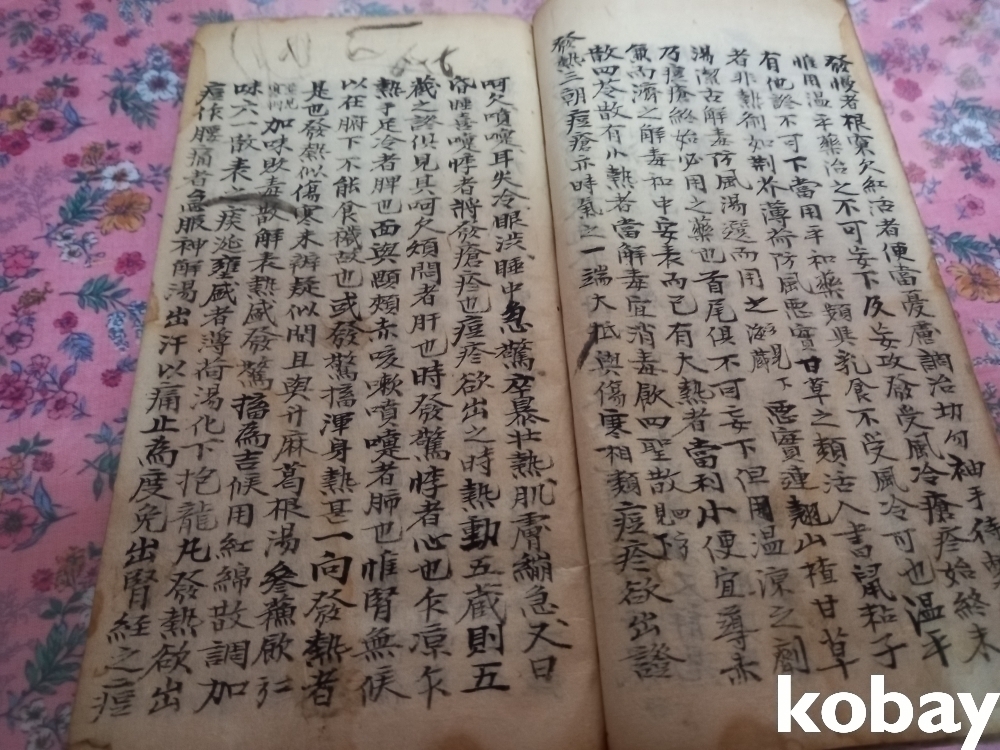 發慢者根窠欠紅活者便當憂慮調治切勿袖手待
惟用溫平藥治之不可妄下及妄攻發受風冷瘡疹始終未
有他證不可下當用平和藥類與乳食不受風冷可也溫平
者非熱劑如荊芥薄荷防風惡實甘草之類活人書鼠粘子
湯潔古解毒防風湯選而用之 下 惡實連翹山楂甘草
乃痘瘡終始必用之藥也首尾俱不可妄下但用溫凉之劑
兼而濟之解毒和中安表而已有大熱者當利小便宜導赤
散四苓散有小熱者當解毒宜消毒飮四聖散
發熱三朝痘瘡亦時氣之一端大抵與傷寒相類痘疹欲出證
呵欠噴嚔耳尖冷眼澁睡中急驚卒暴壯熱肌膚繃急又曰
昏睡喜嚔悸者將發瘡疹也痘疹欲出之時熱動五藏則五
藏之證似見其呵欠煩悶者肝也時發驚悸者心也乍凉乍
熱手足冷者脾也面與顋頰赤咳嗽噴嚔者肺也惟腎無候
以在腑下不能食穢故也或發驚搐渾身熱甚一向發熱者
是也發熱似傷寒未辨疑似間且與升麻葛根湯參蘇飮
加味敗毒散解表熱盛發驚搐爲吉候用紅綿散調加
味六一散表之痰涎壅盛者薄荷湯化下抱龍丸發熱欲出
痘作腰痛者急服神解湯出汗以痛止爲度免出腎經之痘
kobay